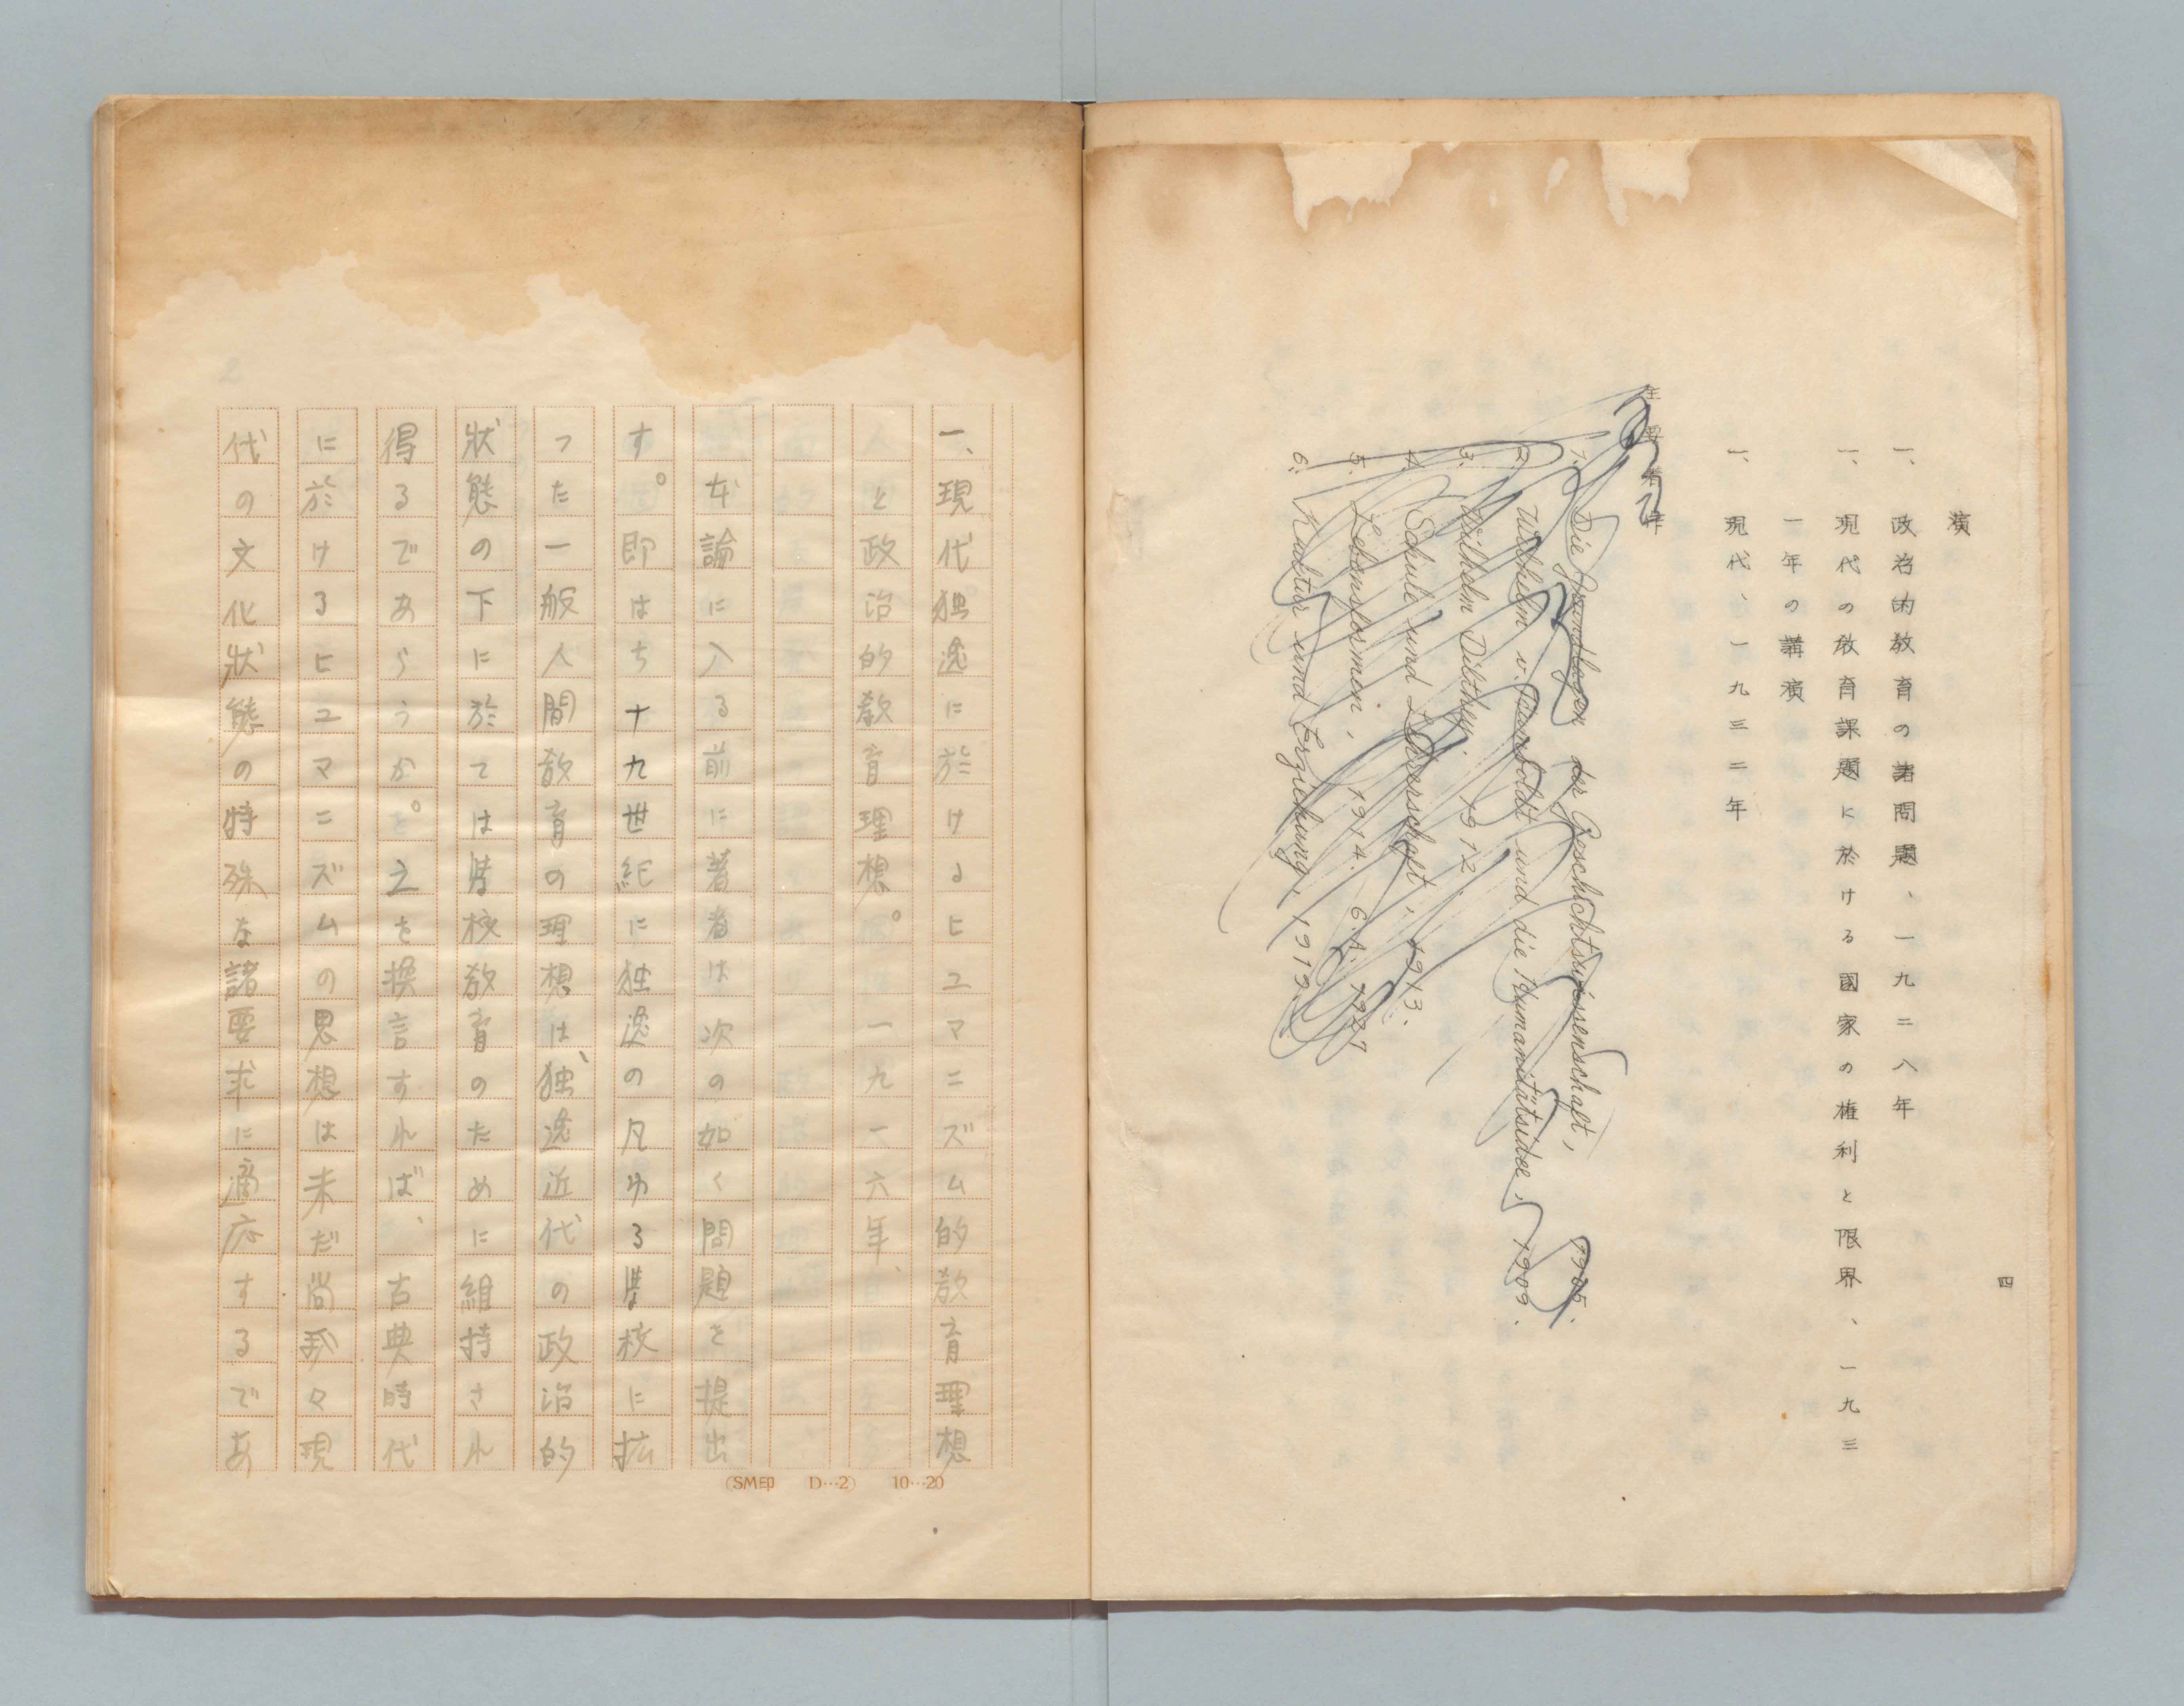 四
演
一、政治的教育の諸問題、一九二八年
一、現代の教育課題に於ける國家の権利と限界、一九三
一年の講演
一、現代、一九三二年
主要著作
1. Die Grundlagen der Geschichtswissenschaft, 1905.
2. Wilhelm v. Humboldt und die Humanitätsidee, 1909.
3. Wilhelm Dilthey. 1912.
4. Schule und Lehrerschaft, 1913.
5. Lebensformen, 1914. 6.A. 1927
6. Kultur und Erziehung, 1919.
一、現代独逸に於けるヒユマニズム的教育理想
と政治的教育理想。 一九一六年、
本論に入る前に著者は次の如く問題を提出
す。即はち十九世紀に独逸の凡ゆる学校に拡
つた一般人間教育の理想は、独逸近代の政治的
狀態の下に於ては学校教育のために維持され
得るであらうか。之を換言すれば、古典時代
に於けるヒユマニズムの思想は未だ尚我々現
代の文化狀態の特殊な諸要求に適応するであ
(SM印 D…2) 10…20
2